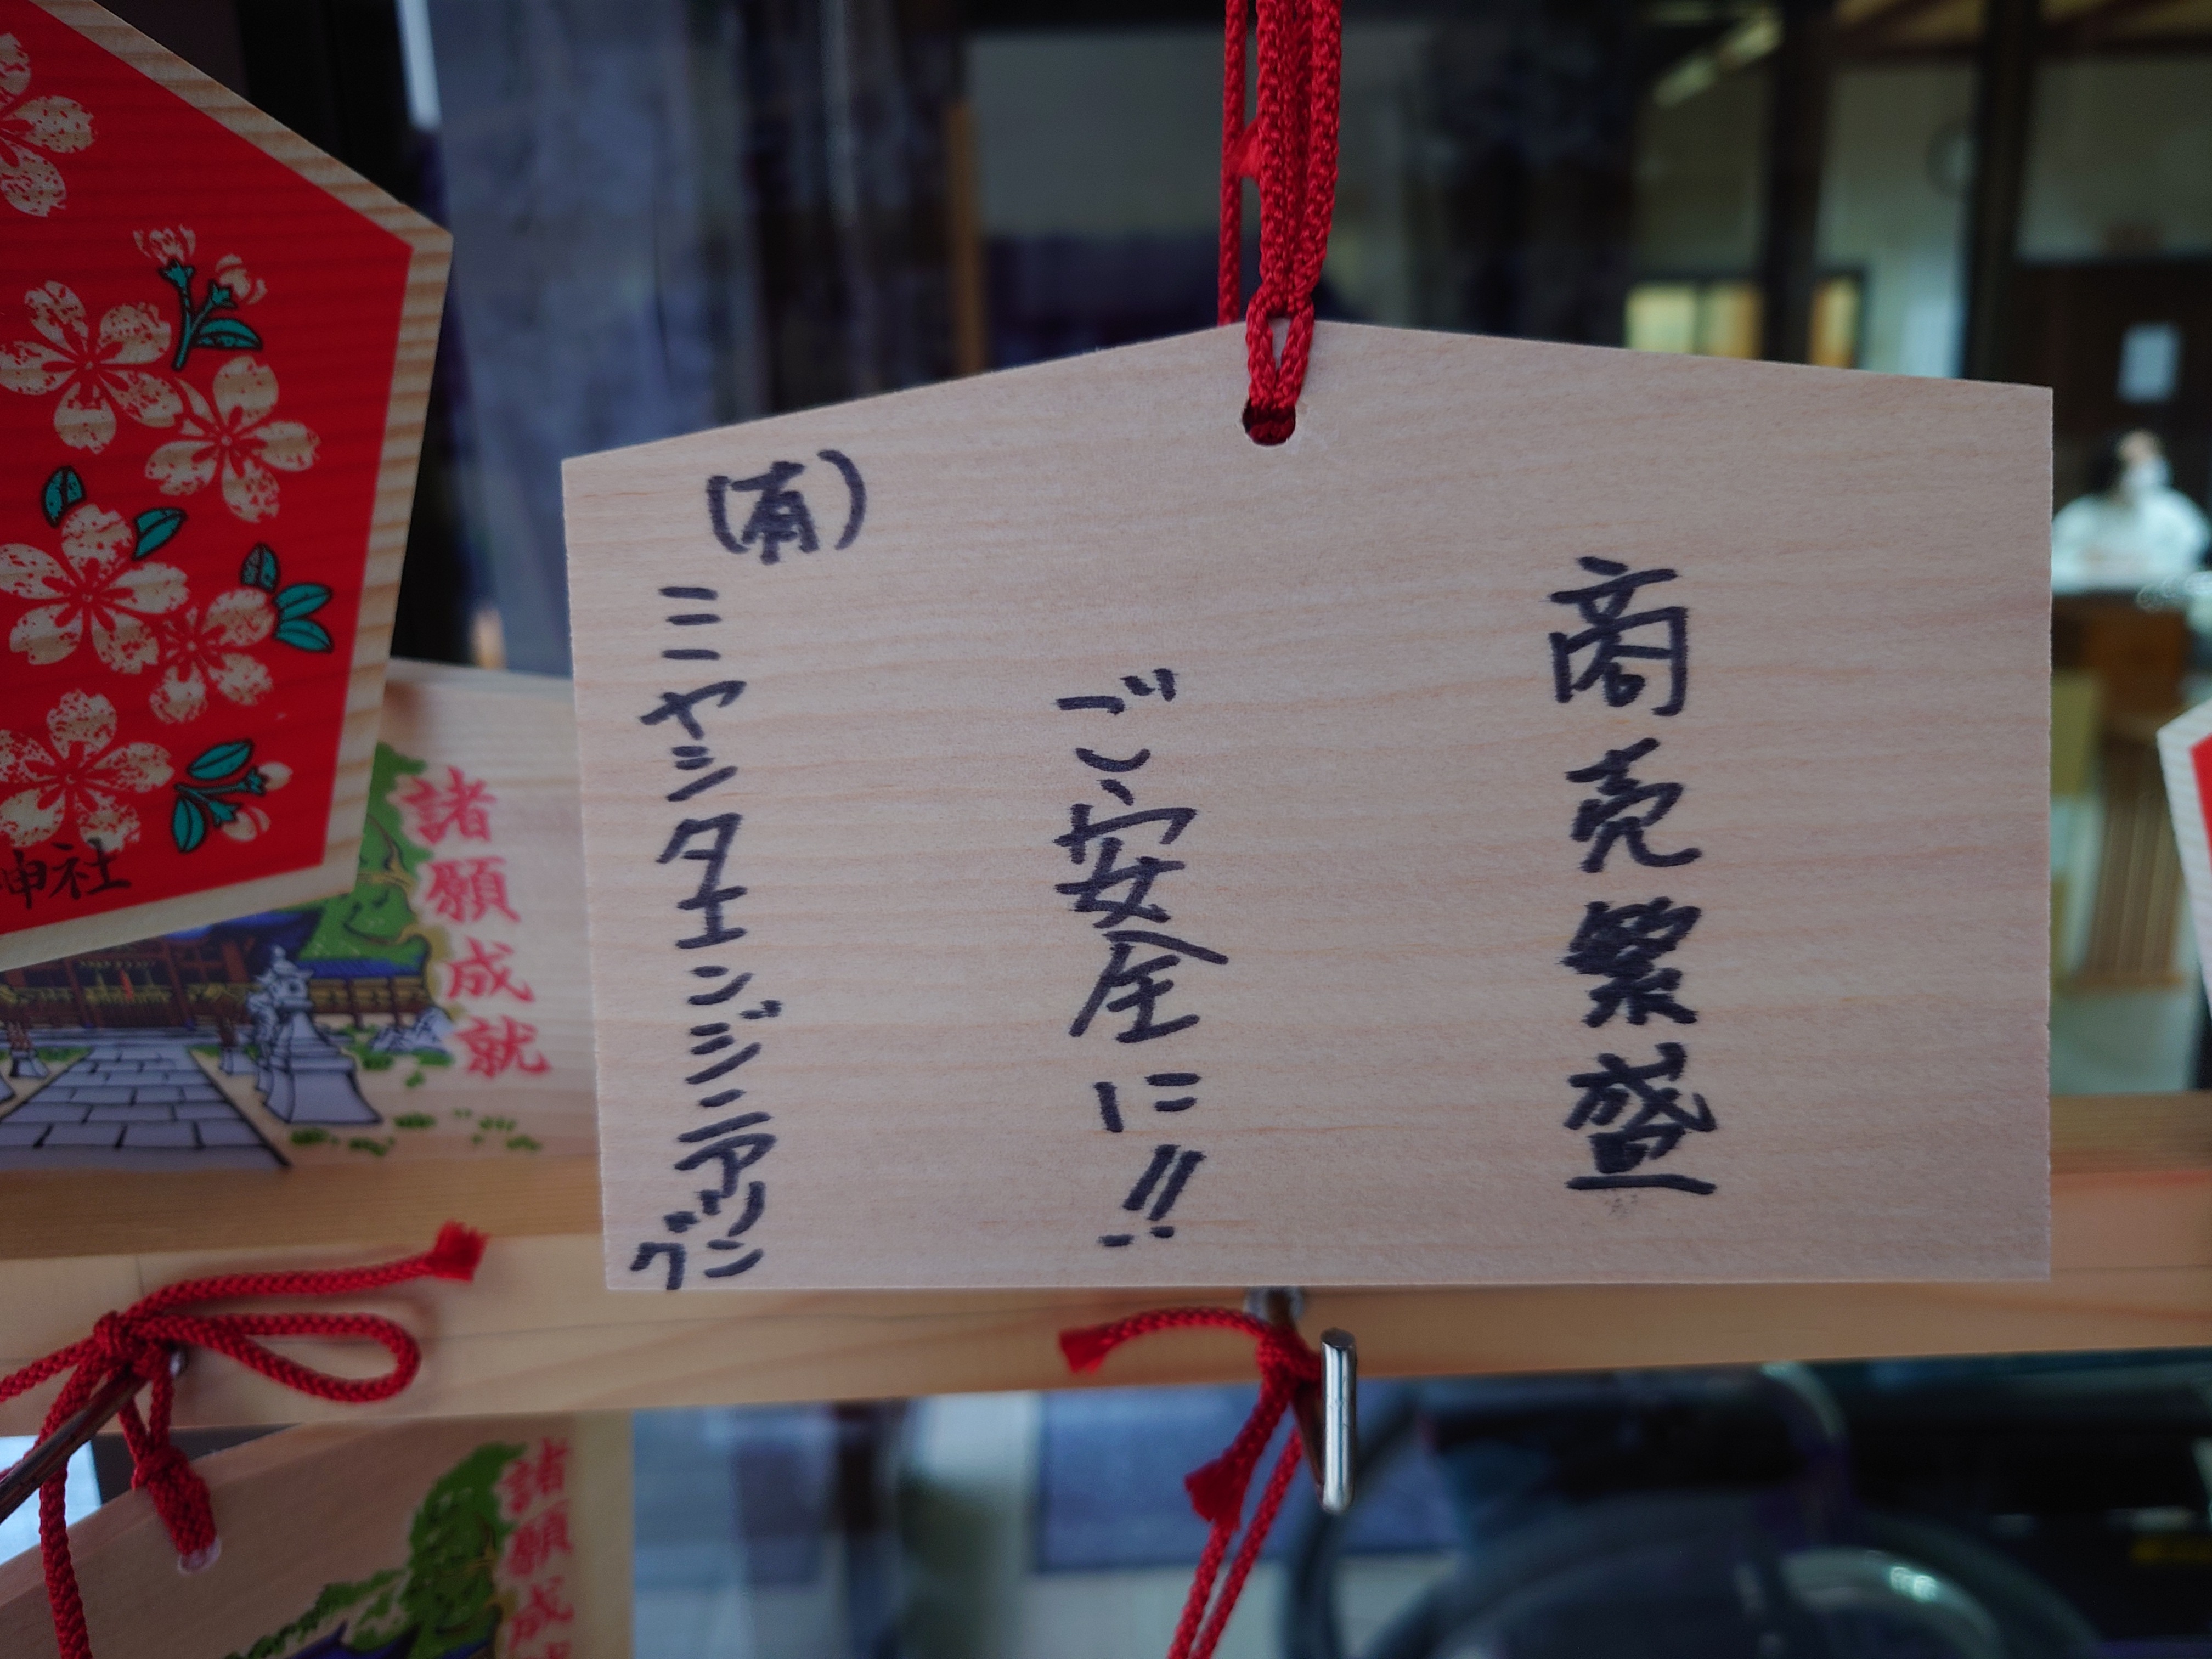 商売繁盛
ご安全に!!
(有)ミヤシタエンジニアリング
諸願成就
神社
諸願成